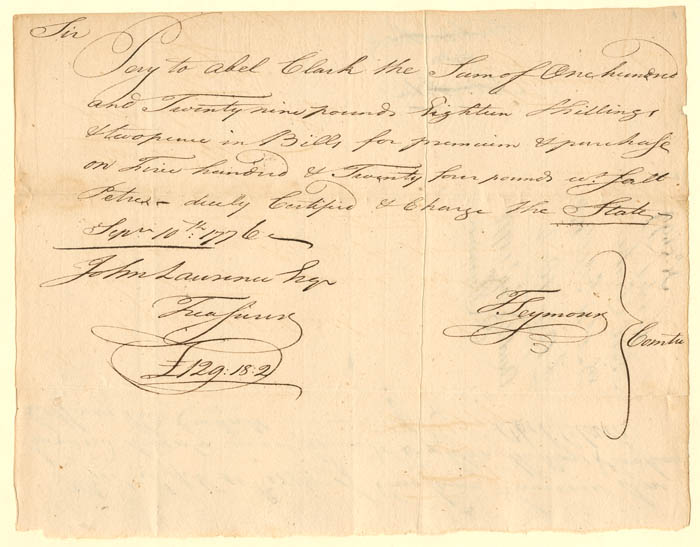 Sir
Pay to Abel Clark the Sum of One hundred
and Twenty nine pounds Eighteen Shillings
& two pence in Bills for premium & purchase
on Five hundred & Twenty four pounds wt. Salt
Petre - duely Certified & Charge the State -
Septr. 10th. 1776
John Lawrence Esqr
Treasurer
£129:18:2
T Seymour
Comtee